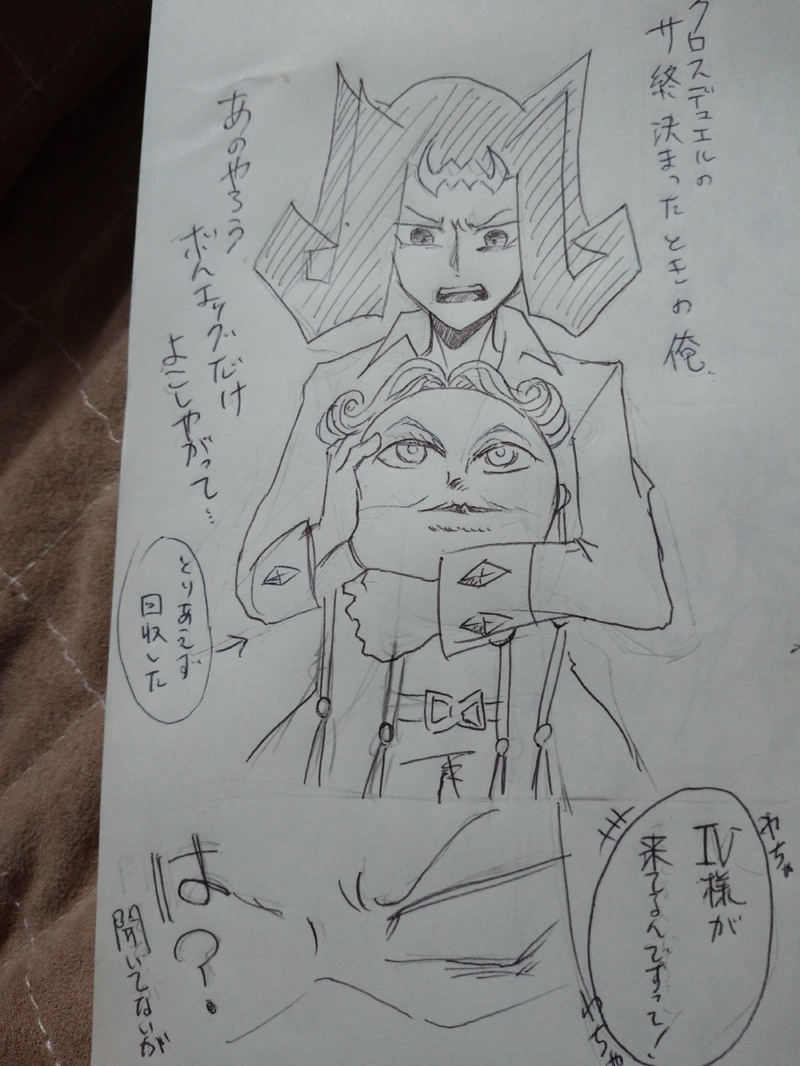 クロスデュエルの
サ終決まったときの俺
あのやろう
ボムエッグだけ
よこしやがって…
とりあえず
回収した
Ⅳ様が
来てるんですって!
わちゃ
わちゃ
は?
聞いてないが